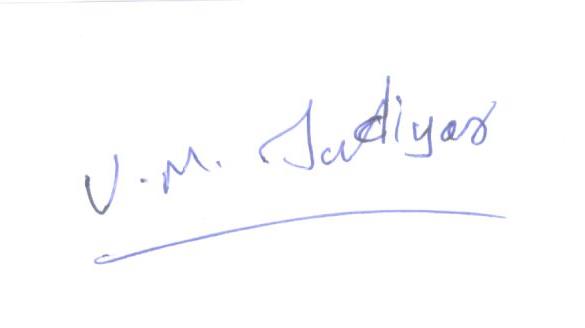 V. M. Jadiyar